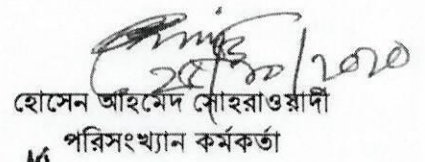 ২৫/১০/২০২০
হোসেন আহমেদ সোহরাওয়ার্দী
পরিসংখ্যান কর্মকর্তা